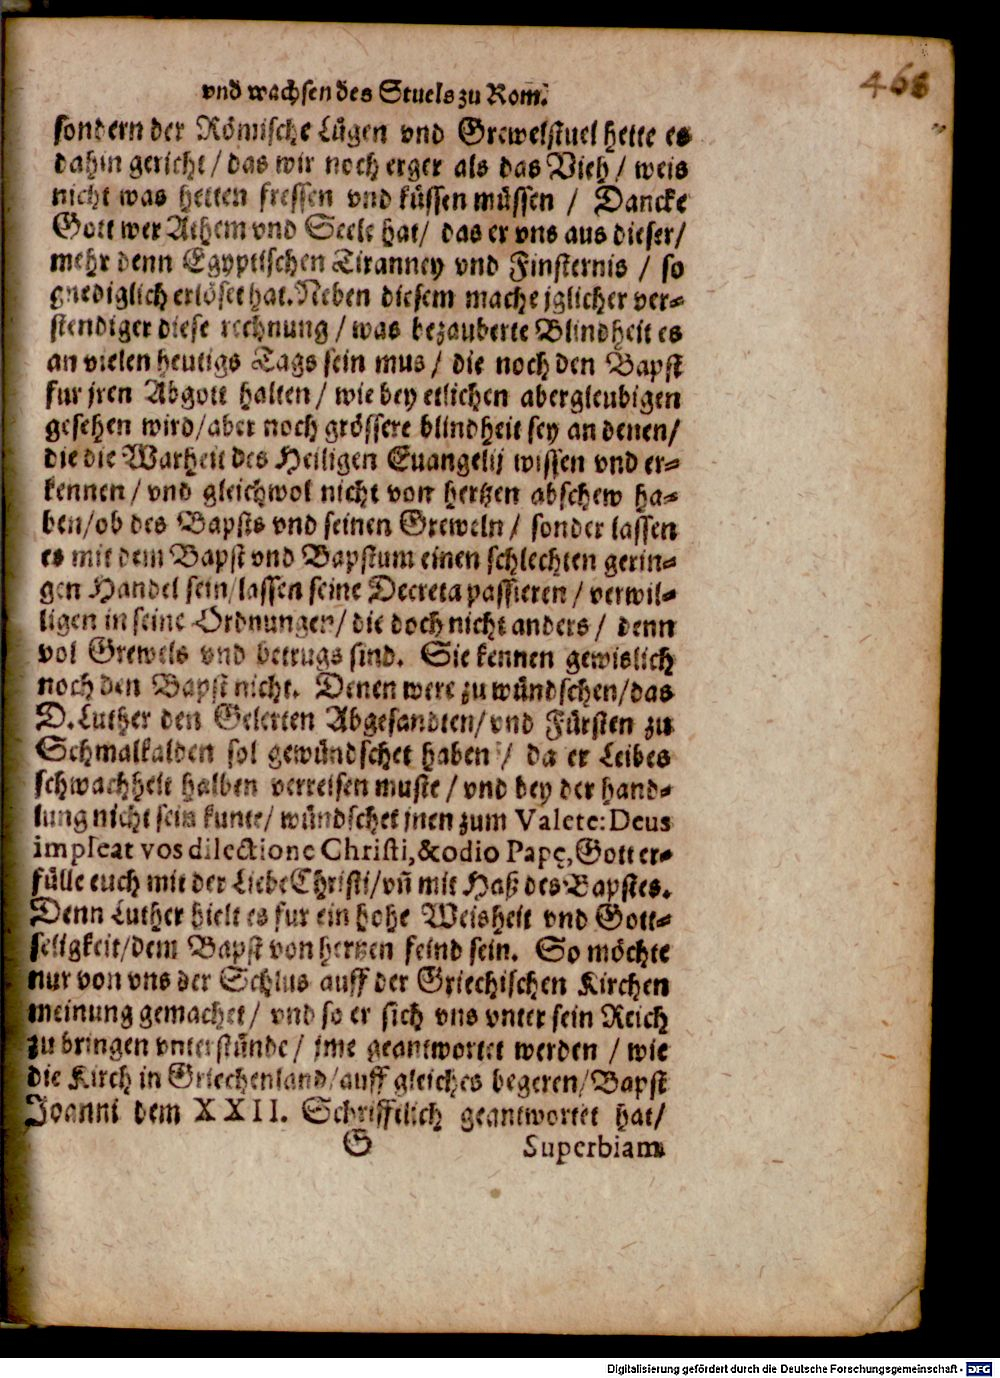 468
vnd wachsen des Stuels zu Rom.
sondern der Römische Lügen vnd Grewelstuel hette es
dahin gericht / das wir noch erger als das Vieh / weis
nicht was hetten fressen vnd küssen müssen / Dancke
Gott wer Athem vnd Seele hat / das er vns aus dieser /
mehr denn Egyptischen Tiranney vnd Finsternis / so
gnediglich erlöset hat. Neben diesem mache jglicher ver-
stendiger diese rechnung / was bezauberte Blindheit es
an vielen heutigs Tags sein mus / die noch den Bapst
fur jren Abgott halten / wie bey etlichen abergleubigen
gesehen wird / aber noch grössere blindheit sey an denen /
die die Warheit des Heiligen Euangelij wissen vnd er-
kennen / vnd gleichwol nicht von hertzen abschew ha-
ben / ob des Bapsts vnd seinen Greweln / sonder lassen
es mit dem Bapst vnd Bapstum einen schlechten gerin-
gen Handel sein / lassen seine Decreta passieren / verwil-
ligen in seine Ordnungen / die doch nicht anders / denn
vol Grewels vnd betrugs sind. Sie kennen gewislich
noch den Bapst nicht. Denen were zu wündschen / das
D. Luther den Gelerten Abgesandten / vnd Fürsten zu
Schmalkalden sol gewündschet haben / da er Leibes
schwachheit halben verreisen muste / vnd bey der hand-
lung nicht sein kunte / wündschet jnen zum Valete: Deus
impleat vos dilectione Christi, & odio Papę, Gott er-
fülle euch mit der Liebe Christi / vñ mit Haß des Bapstes.
Denn Luther hielt es fur ein hohe Weisheit vnd Gott-
seligkeit / dem Bapst von hertzen feind sein. So möchte
nur von vns der Schlus auff der Griechischen Kirchen
meinung gemachet / vnd so er sich vns vnter sein Reich
zu bringen vnterstünde / jme geantwortet werden / wie
die Kirch in Griechenland / auff gleiches begeren / Bapst
Joanni dem XXII. Schrifftlich geantwortet hat /
G Superbiam
Digitalisierung gefördert durch die Deutsche Forschungsgemeinschaft - DFG